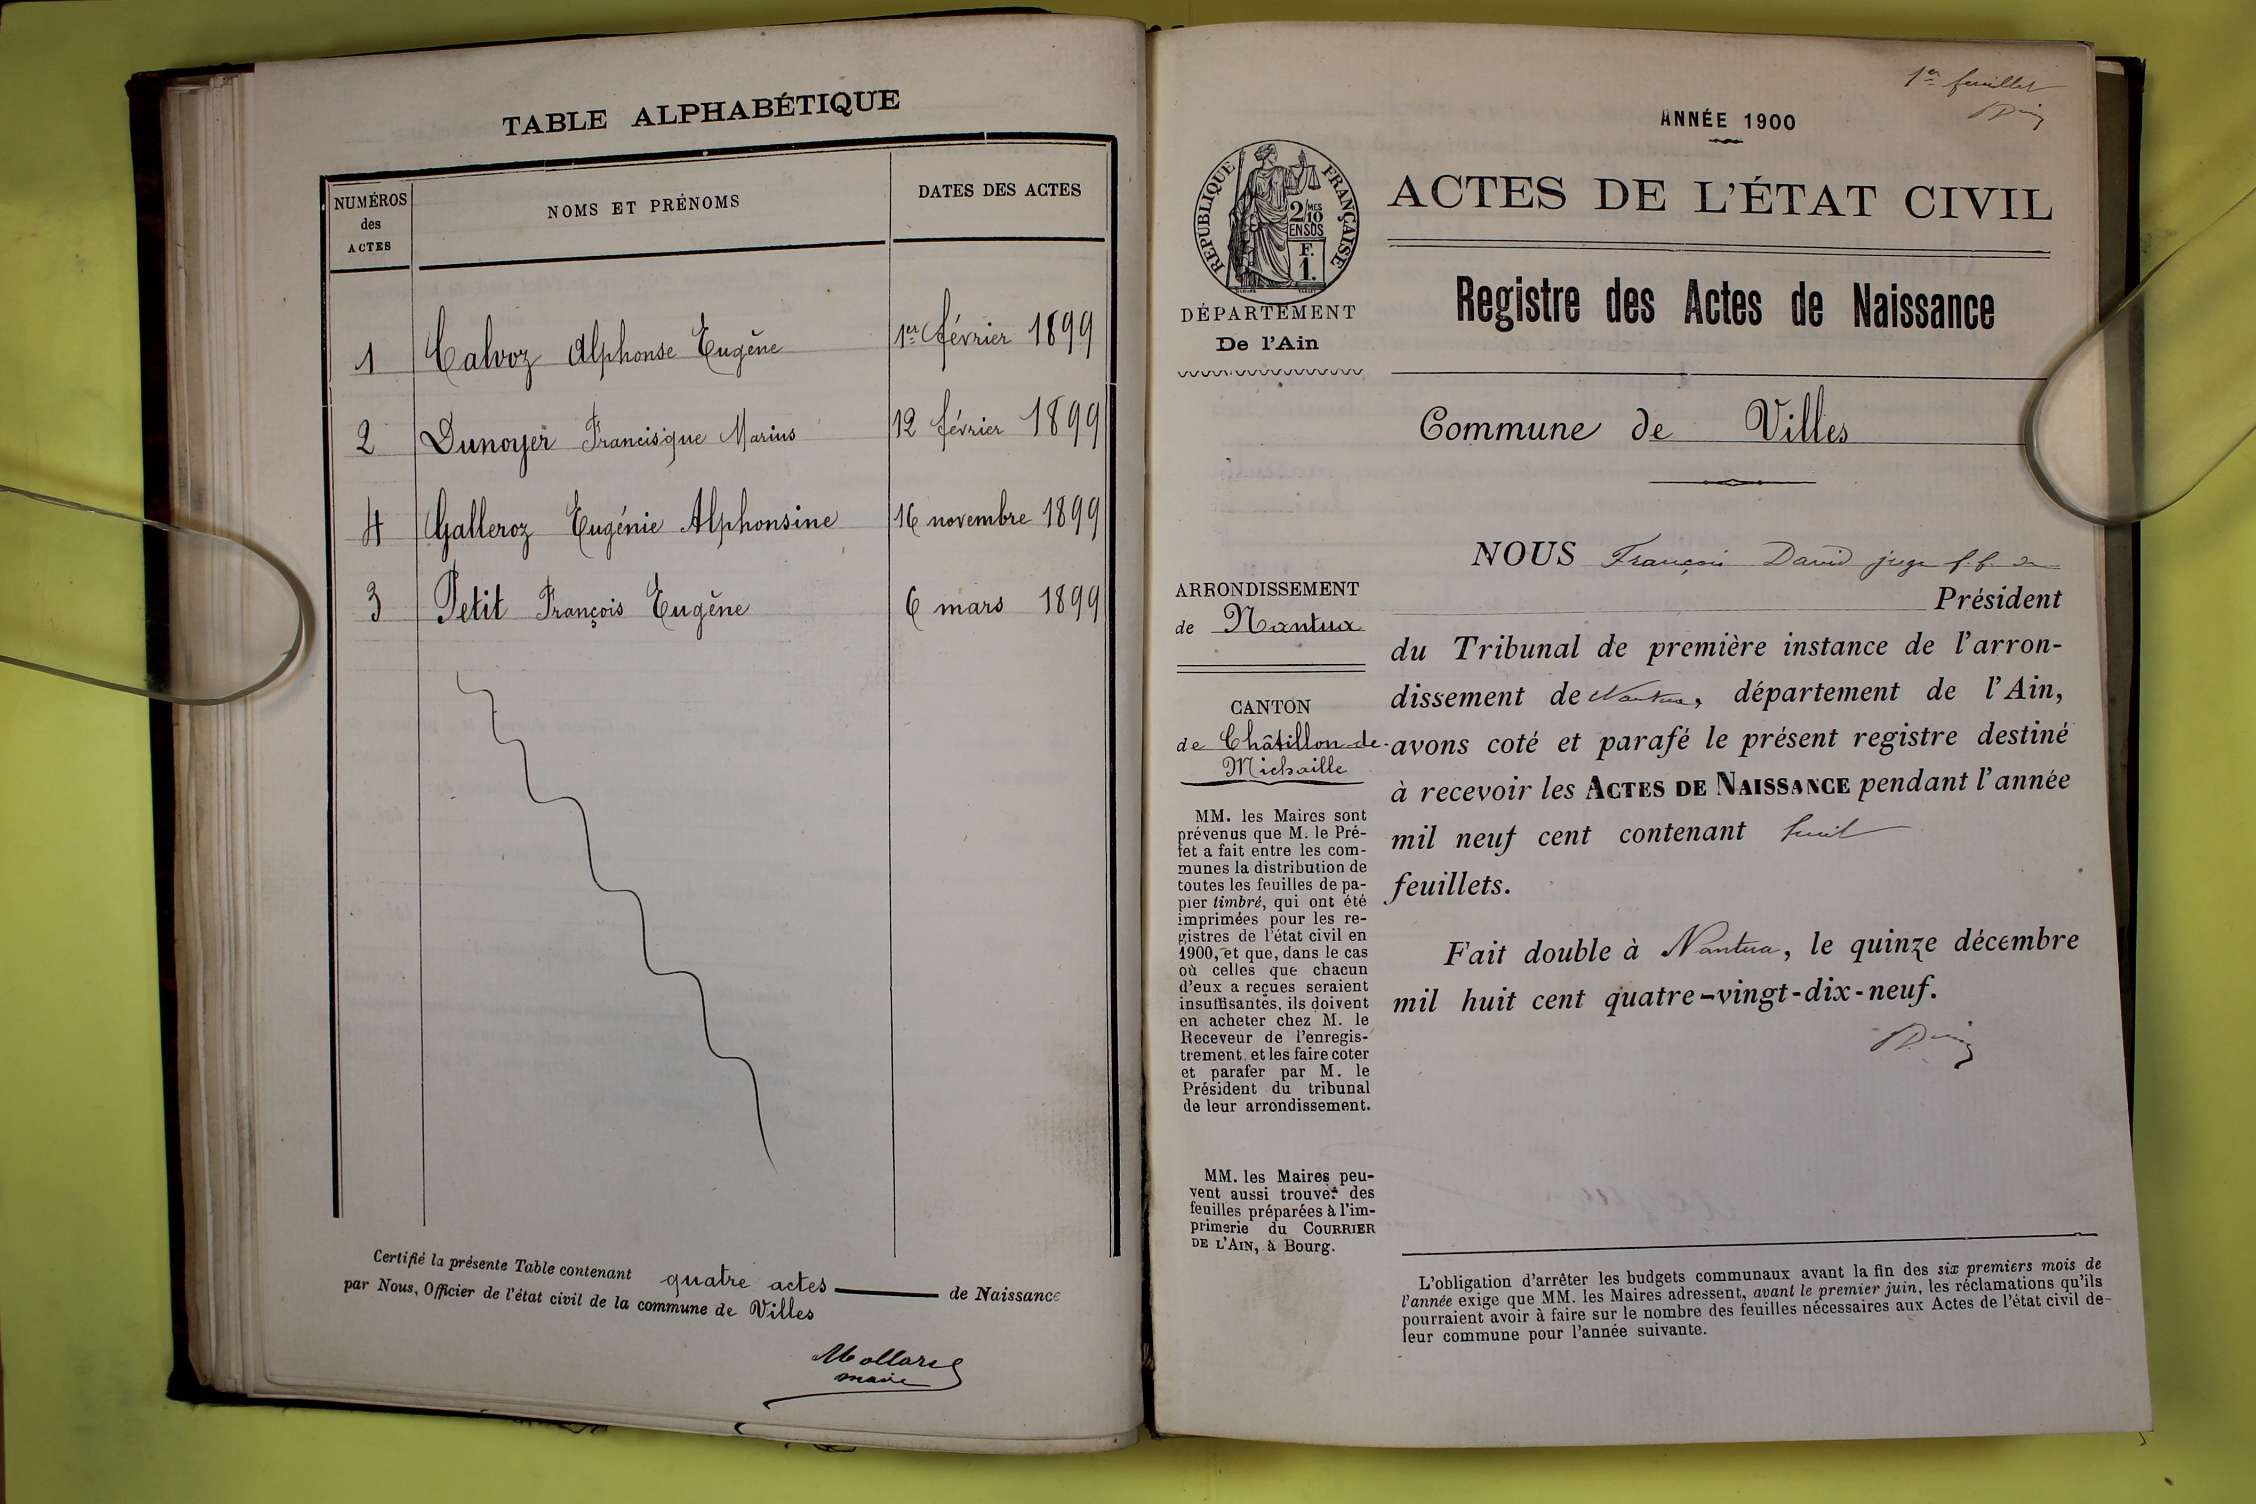 TABLE ALPHABÉTIQUE
NUMÉROS
des
ACTES
NOMS ET PRÉNOMS
DATES DES ACTES
1 Calvoz Alphonse Eugène 1er février 1899
2 Dunoyer Francisque Marius 12 février 1899
4 Galleroz Eugénie Alphonsine 16 novembre 1899
3 Petit François Eugène 6 mars 1899
Certifié la présente Table contenant quatre actes de Naissance
par Nous, Officier de l'état civil de la commune de Villes
maire
1er feuillet
ANNÉE 1900
RÉPUBLIQUE FRANÇAISE
2/10 MES
EN SUS
F.
1.
DÉPARTEMENT
De l'Ain
ACTES DE L'ÉTAT CIVIL
Registre des Actes de Naissance
Commune de Villes
ARRONDISSEMENT
de Nantua
CANTON
de Châtillon-de-
Michaille
MM. les Maires sont
prévenus que M. le Pré-
fet a fait entre les com-
munes la distribution de
toutes les feuilles de pa-
pier timbré, qui ont été
imprimées pour les re-
gistres de l'état civil en
1900, et que, dans le cas
où celles que chacun
d'eux a reçues seraient
insuffisantes, ils doivent
en acheter chez M. le
Receveur de l'enregis-
trement, et les faire coter
et parafer par M. le
Président du tribunal
de leur arrondissement.
MM. les Maires peu-
vent aussi trouver des
feuilles préparées à l'im-
primerie du COURRIER
DE L'AIN, à Bourg.
NOUS François David juge f. f. de
Président
du Tribunal de première instance de l'arron-
dissement de Nantua, département de l'Ain,
avons coté et parafé le présent registre destiné
à recevoir les ACTES DE NAISSANCE pendant l'année
mil neuf cent contenant huit
feuillets.
Fait double à Nantua, le quinze décembre
mil huit cent quatre-vingt-dix-neuf.
L'obligation d'arrêter les budgets communaux avant la fin des six premiers mois de
l'année exige que MM. les Maires adressent, avant le premier juin, les réclamations qu'ils
pourraient avoir à faire sur le nombre des feuilles nécessaires aux Actes de l'état civil de
leur commune pour l'année suivante.